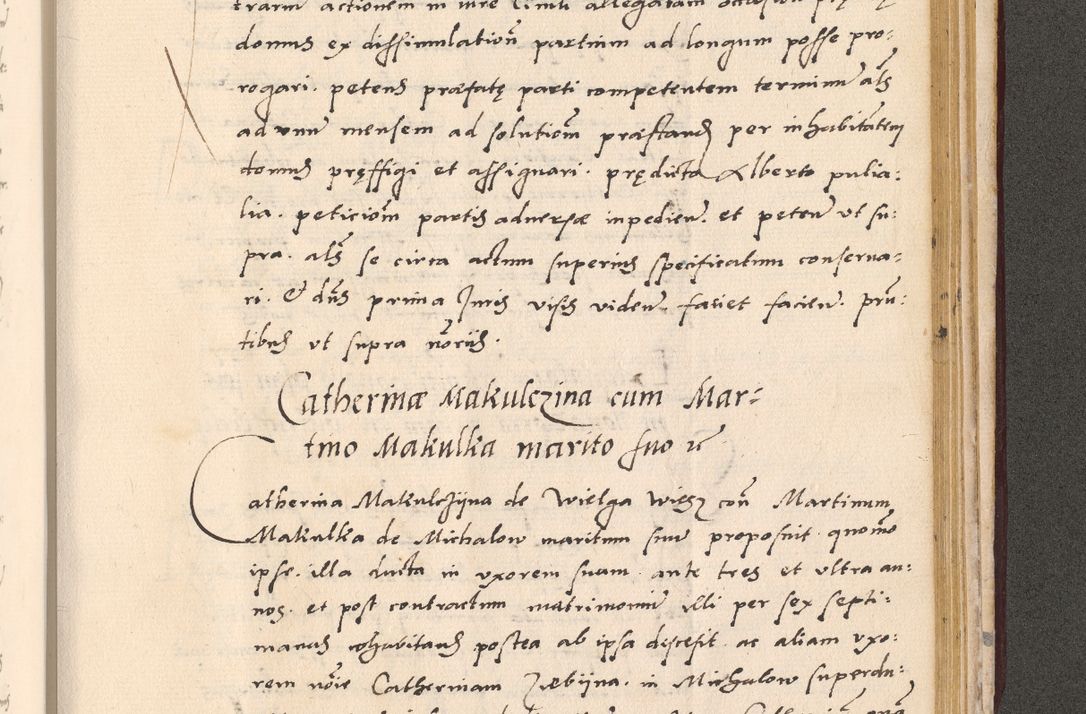 trariu actionem in iure
domus ex dissimulation̄ partium ad longum posse pro-
rogari. petens præfatę parti competentem terminū als
ad unū mensem ad solutionem præstand per inhabitatem
domus pręffigi et assignari. prędicta Alberto pulia-
lia. peticiom partis adversæ inpedien. et peten ut su-
pra. als se circa actum superius specificatum conserva-
ri. & dns prima Juris visis viden. faciet facien. prn-
tibus ut supra noriis.
Catherinæ Makulczina cum Mar-
tino Makulka marito suo
Catherina Makulczijna de Wielga Wiesz con Martinum
Makulka de Michalow maritum suū proposuit quomo
ipse. illa ducta in uxorem suam. ante tres et ultra an-
nos. et post contractum matrimoniū illi per sex septi-
manas cohabitans postea ab ipsa discesit. ac aliam uxo-
rem noie Catherinam Ziebijna. in Michalow superdu-